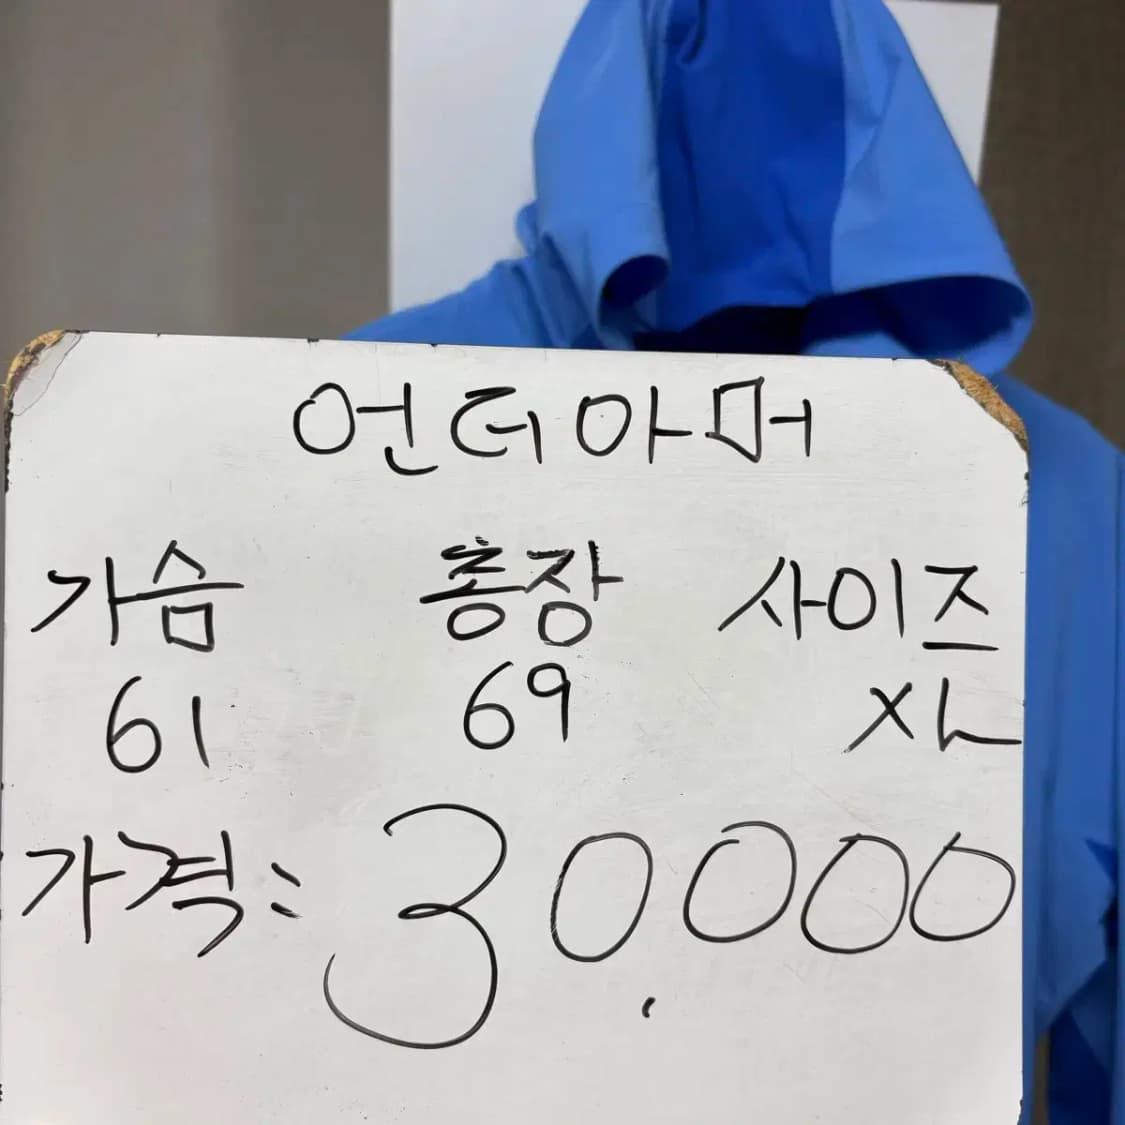 언더아머
가슴 총장 사이즈
61 69 XL
가격: 30,000